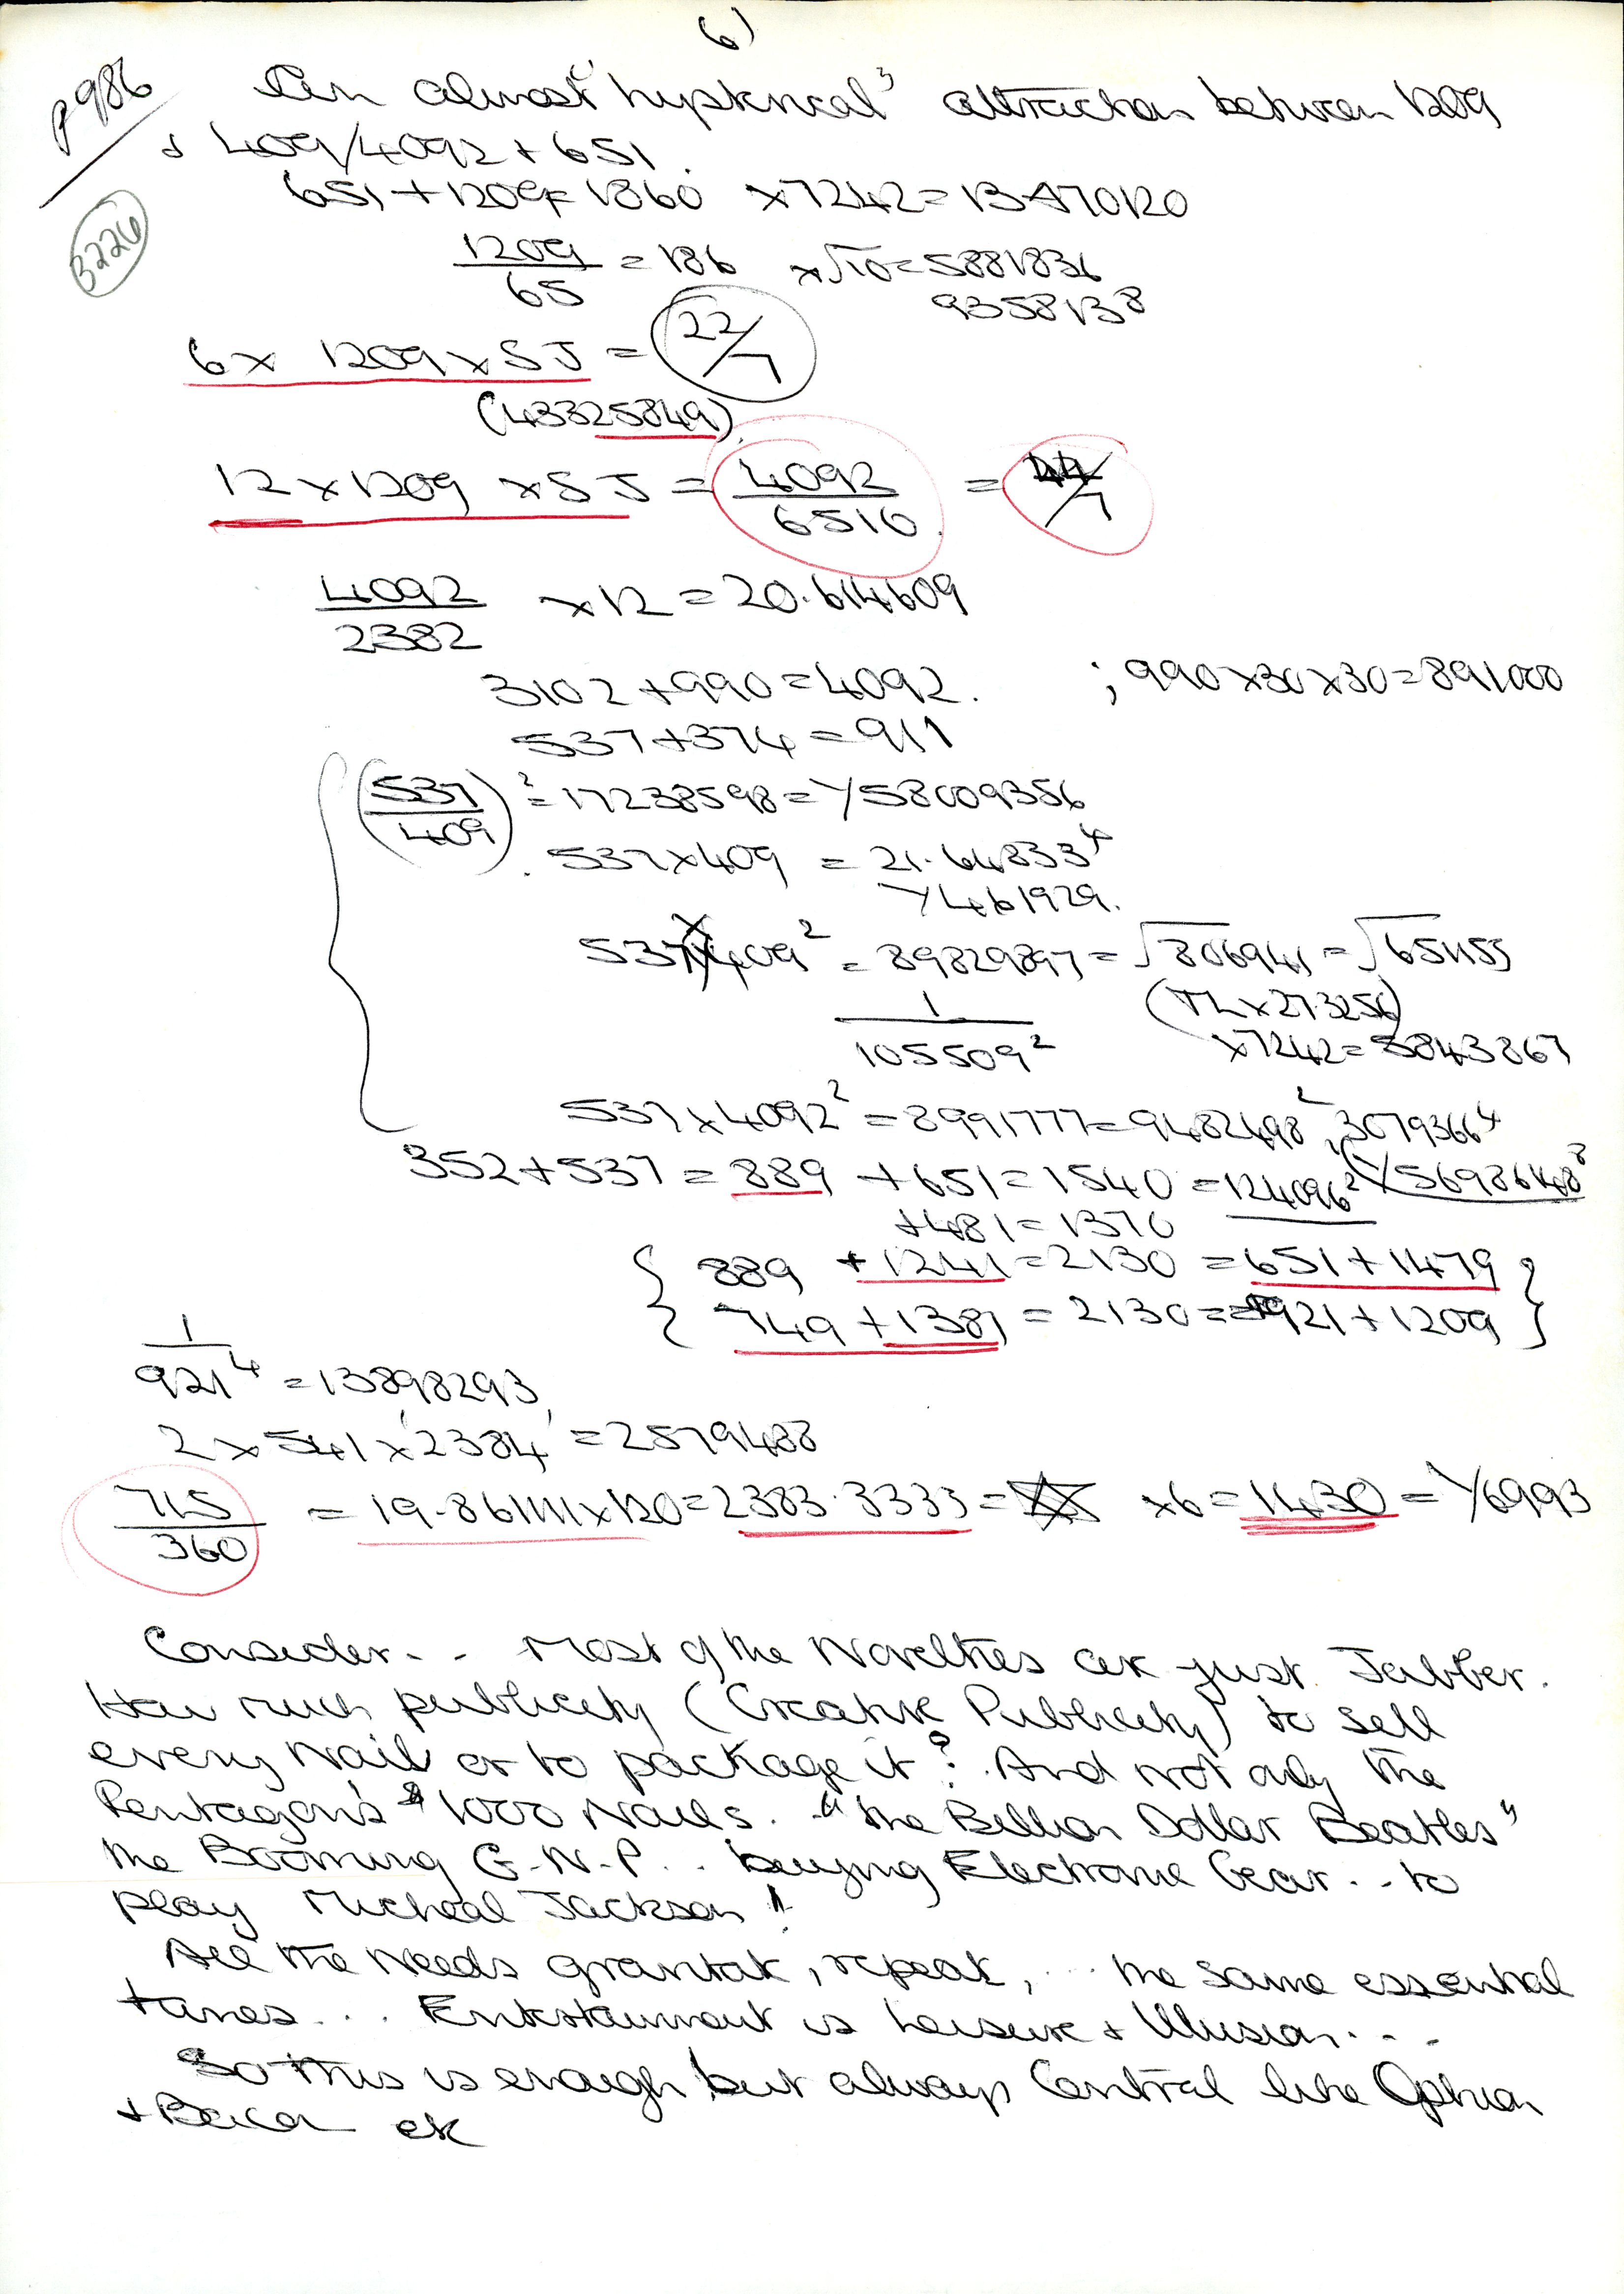 6)
P986
3226
An almost "hysterical" attraction between 1209
+ 409/4092 + 651.
651 + 1209 = 1860 x 7242 = 13470120
1209/65 = 186 x √10 = 5881836
9358138
6 x 1209 x SJ = 22/7
(43325849)
12 x 1209 x SJ = 4092/6510 = 44/7
4092/2382 x 12 = 20.614609
3102 + 990 = 4092. ; 990 x 30 x 30 = 891000
537 + 374 = 911
(537/409)² = 17238598 = 1/58009356
537 x 409 = 21.64833⁴
1/461929.
537 x 409² = 89829897 = √806941 = √651155
1/105509² (TL x 27.3256)
x 7242 = 5843867
537 x 4092² = 8991777 = 9482498², 3079366⁴
352 + 537 = 889 + 651 = 1540 = 124096² (1/56986148⁸
+ 481 = 1370
{ 889 + 1241 = 2130 = 651 + 1479 }
{ 749 + 1381 = 2130 = 921 + 1209 }
1/921⁴ = 13898293
2 x 541 x 2384 = 2579488
715/360 = 19.861111 x 120 = 2383.3333 = x 6 = 1430 = 1/6993
Consider.. Most of the Novelties are just Jabber.
How much publicity (Creative Publicity) to sell
every Nail or to package it? And not only the
Pentagon's $1000 Nails. "the Billion Dollar Beatles"
the Booming G.N.P... buying Electronic Gear... to
play Micheal Jackson!
All the Needs , repeat, ... the same essential
tunes... Entertainment is Leisure + Illusion...
So this is enough but always Central like
+ etc